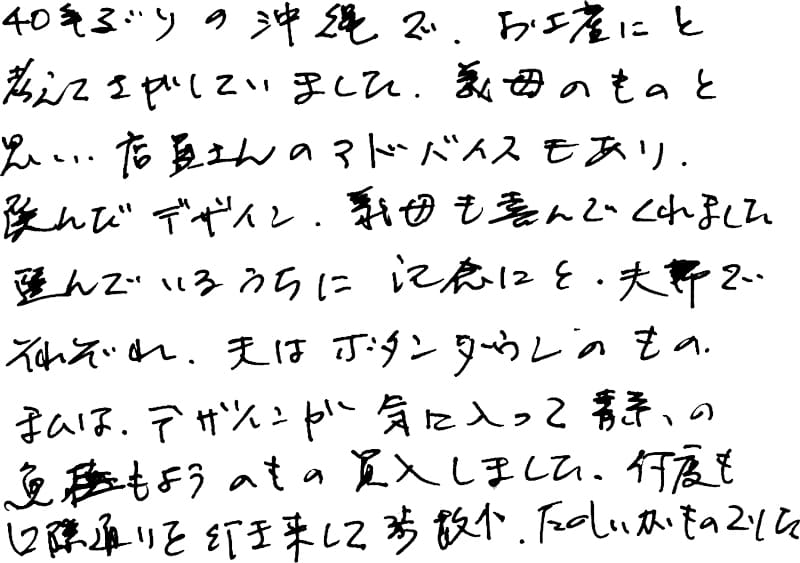 40年ぶりの沖縄で、お土産にと
考えてさがしていました。義母のものと
思い、店員さんのアドバイスもあり、
選んだデザイン、義母も喜んでくれました
選んでいるうちに記念にと、夫婦で
それぞれ、夫はボタンダウンのもの、
私は、デザインが気に入って青系、の
魚もようのもの買入しました。何度も
国際通りを行き来して歩数が、たのしいかいものでした